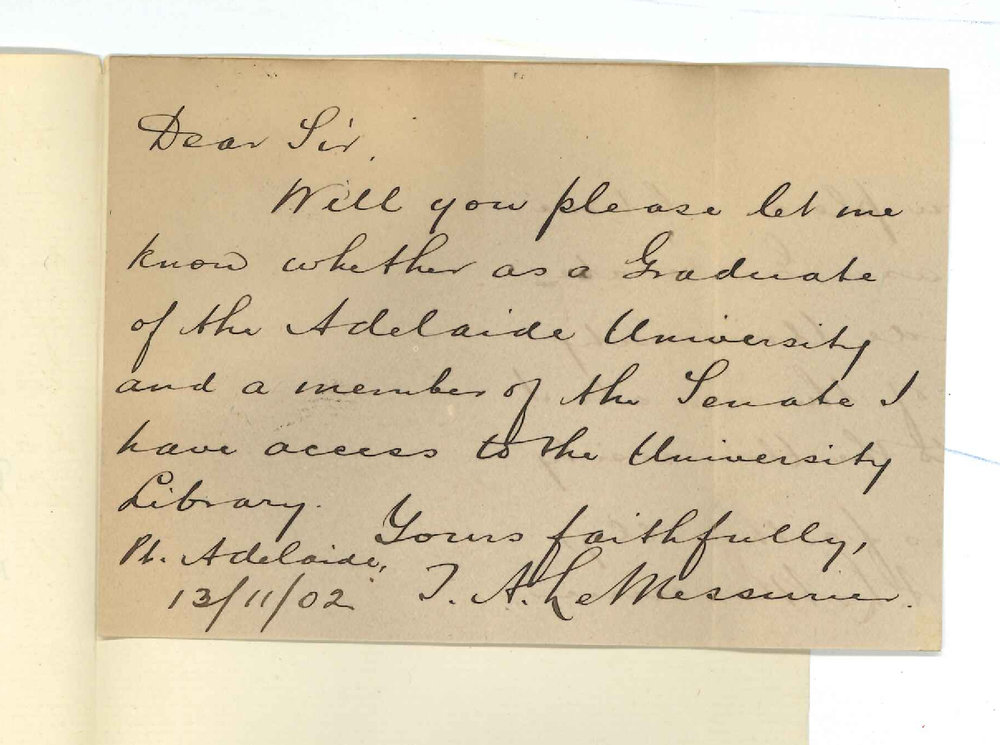 Dear Sir,
Will you please let me
know whether as a Graduate
of the Adelaide University
and a member of the Senate I
have access to the University
Library.
Yours faithfully,
Pt. Adelaide,
13/11/02
T. A. Le Messurier.